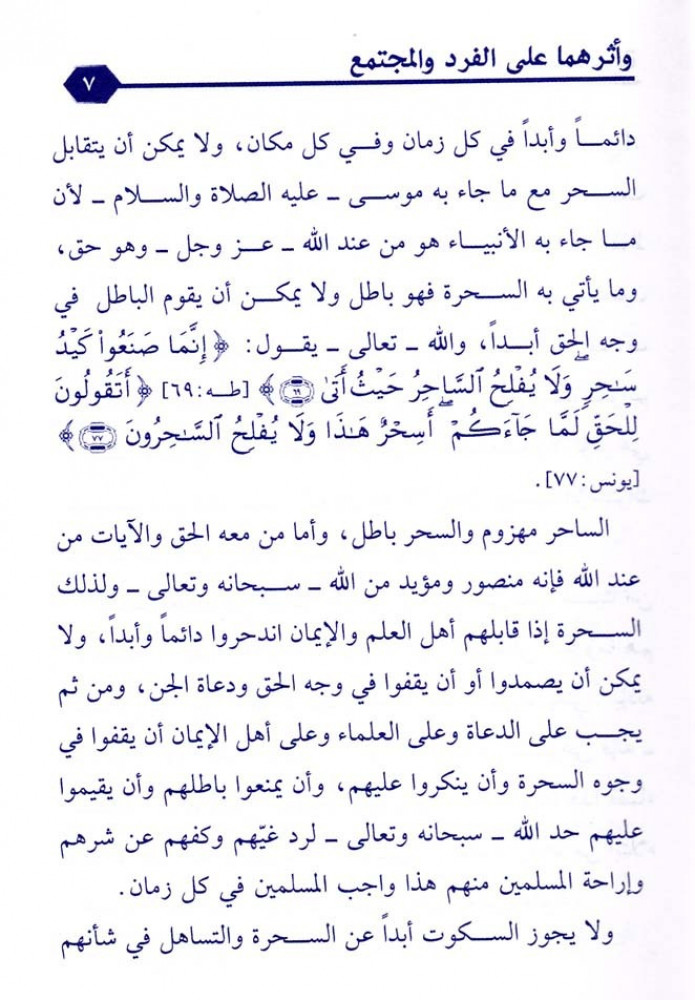 وأثرهما على الفرد والمجتمع
٧
دائمـاً وأبداً في كل زمان وفـي كل مكان، ولا يمكن أن يتقابل
السـحر مع ما جاء به موسـى ـ عليه الصلاة والسـلام ـ لأن
مـا جاء به الأنبيـاء هو من عند الله ـ عـز وجل ـ وهو حق،
وما يأتي به السـحرة فهو باطل ولا يمكـن أن يقوم الباطل في
وجه الحق أبـداً، والله ـ تعالى ـ يقـول: ﴿ إِنَّمَا صَنَعُواْ كَيْدُ
سَٰحِرٍۖ وَلَا يُفْلِحُ ٱلسَّاحِرُ حَيْثُ أَتَىٰ ٦٩﴾ [طـه:٦٩] ﴿ أَتَقُولُونَ
لِلْحَقِّ لَمَّا جَآءَكُمْۖ أَسِحْرٌ هَٰذَا وَلَا يُفْلِحُ ٱلسَّٰحِرُونَ ٧٧﴾
[يونس:٧٧].
الساحر مهزوم والسحر باطل، وأما من معه الحق والآيات من
عند الله فإنه منصور ومؤيد من الله ـ سـبحانه وتعالى ـ ولذلك
السـحرة إذا قابلهم أهل العلم والإيمان اندحروا دائماً وأبداً، ولا
يمكن أن يصمدوا أو أن يقفوا في وجه الحق ودعاة الجن، ومن ثم
يجـب على الدعاة وعلى العلماء وعلى أهل الإيمان أن يقفوا في
وجوه السحرة وأن ينكروا عليهم، وأن يمنعوا باطلهم وأن يقيموا
عليهم حد الله ـ سبحانه وتعالى ـ لرد غيّهم وكفهم عن شرهم
وإراحة المسلمين منهم هذا واجب المسلمين في كل زمان.
ولا يجوز السـكوت أبداً عن السـحرة والتساهل في شأنهم